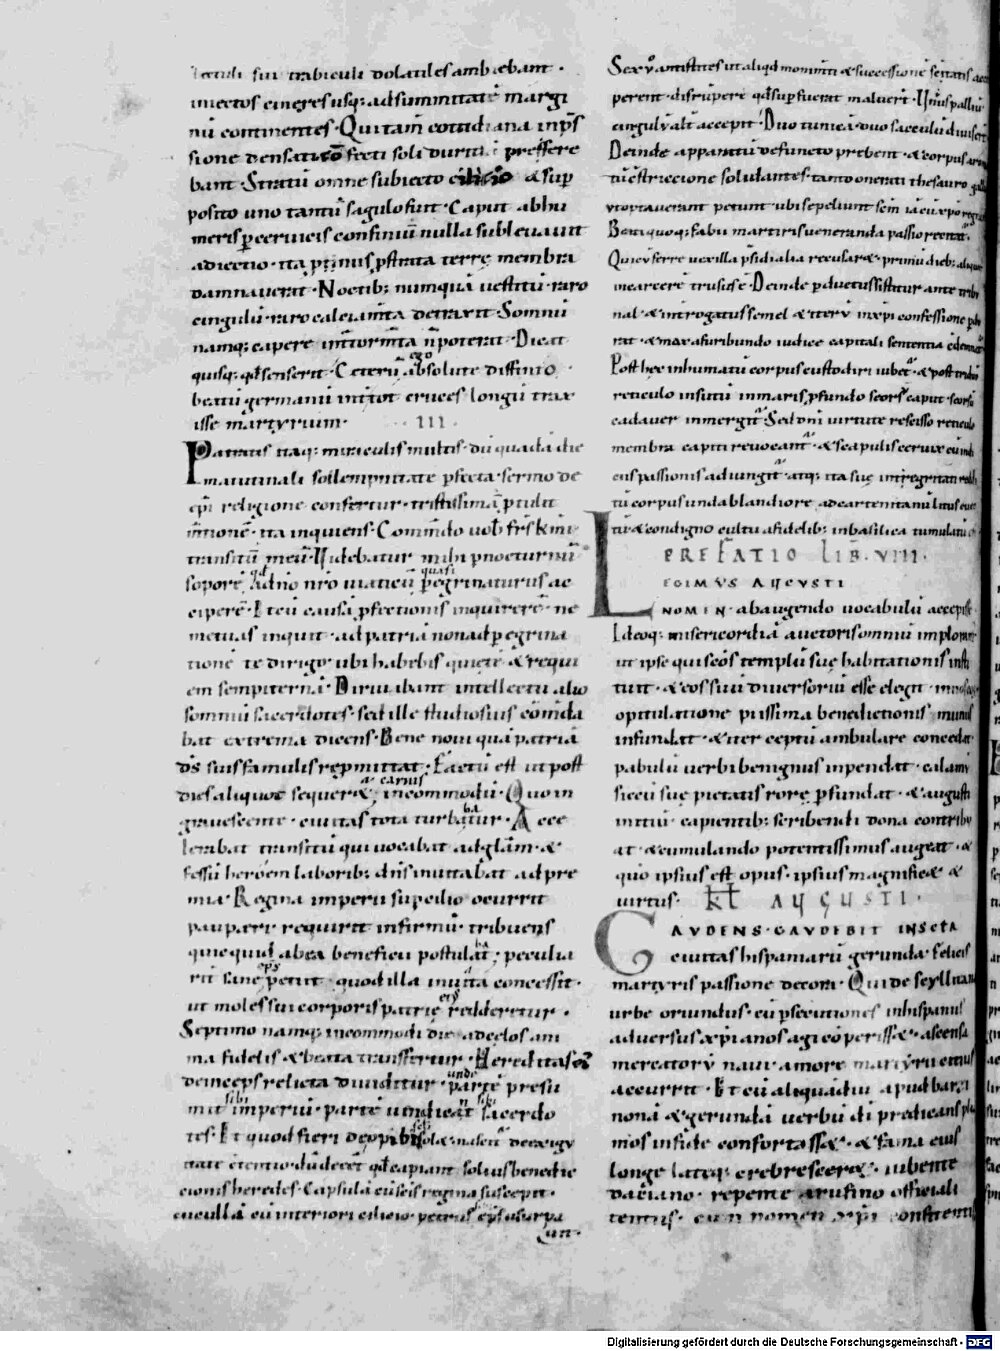 lectuli sui trabiculi dolatiles ambiebant ·
iniectos cineres usq; ad summitatē margi
nū continentes · Qui tam̄ cottidiana inp̄s
sione densati · feeti soli duritia pressere
bant · Stratū omne subiecto cilicio & sup
posito uno tantū sagulo fuit · Caput ab hu
meris p cervicis confiniū nulla sublevavit
adiectio · ita p̱tinus p̱strata terrę membra
damnaverat · Noctib; numquā vestitū · raro
cingulū · raro calciam̄ta detraxit · Somnū
namq; capere int̄ torm̄ta n̄ poterat · Dicat
quisq; qđ senserit · Ceterū ego absolute diffinio
beatū germanū int̄ tot cruces longū trax
isse martyrium · III ·
Patratis itaq; miraculis multis · dū quadā die
matutinali sollempnitate p̱fecta · sermo de
religione consertur · tristissimā p̱tulit
m̄tionē · ita inquiens · Com̄do vob̄ fr̄s k̄mi
transitū meū · Videbatur mihi p nocturnū
soporē qđ a dn̄o nr̄o viaticū quasi pegrinaturus ac
ciperē · Et cū causā p̱fectionis inquirerē · ne
metuas inquit · ad patriā non ad pegrina
tionē te dirigo · ubi habebis quietē & requi
em sempiternā · Dirivabant intellectu alio
somniū sacerdotes · sed ille studiosius com̄da
bat extrema dicens · Bene novi quā patriā
dś suis famulis rep̱mittat · Factū est ut post
dies aliquot sequer& carnis incommodū · Quo in
gravescente · civitas tota turbabatur · Acce
lerabat transitū qui vocabat ad glām · &
fessū heroem laborib; dn̄s invitabat ad pre
mia · Regina imperii supcilio occurrit
pauperi · requirit infirmū · tribuens
quicquid ab ea beneficii postulabat · peculia
rit̄ sane ep̄s petiit · quod illa invita concessit ·
ut moles sui corporis patrię eius redderetur ·
Septimo namq; incommodi die · ad celos ani
ma fidelis & beata transfertur · Hereditas eius
deinceps relicta dividitur · unde partē presu
mit sibi imperiū · partē vindicant sibi sacerdo
tes · Et quod fieri de opib; sol& · nascitur de exigu
itate contentio · dū decer̄t qđ capiant solius benedic
tionis heredes · Capsulā cū sc̄is regina suscepit ·
cucullā cū interiori cilicio petrus ep̄s usurpa
vit ·
Sex v̄ antistites ut aliqđ monim̄ti & successione sc̄itatis
perent · disrupere qđ supfuerat maluer̄t · Unus palliū
cingulū alt̄ accepit · Duo tunicā · duo saculū diviser̄t
Deinde apparatū defuncto prebent · & corpus
ti cōstrictione solidantes · tanto onerati thesauro
ut optaverant petunt · ubi sepeliunt
Beati quoq; fabii martiris veneranda passio recitat̄ ·
Qui cū ferre vexilla p̄sidialia recusar& · primū dieb; aliquot
in carcere trusus ē · Deinde pductus sistitur ante tribu
nal · & introgatus semel & iterū in xp̄i confessione pdu
rat · & mox a furibundo iudice capitali sententia
Post hec inhumatū corpus custodiri iubet · & post
reticulo insutū in maris p̱fundo seorsū caput · seorsū
cadaver inmergit̄ · Sed dn̄i virtute rescisso reticulo
membra capiti revocant̄ · & scapulis cervix
cuspassionis adiungit̄ · atq; ita suę integritati
tū corpus unda blandiore ad cartenitanū litus
tur & condigno cultu a fidelib; in basilica tumulatū ·
PREFATIO LIB · VIIII ·
LEGIMUS AUGUSTI
NOMEN · ab augendo vocabulū accepisse
Ideoq; misericordiā auctoris omniū imploram̄
ut ipse qui sc̄os templū suę habitationis insti
tuit · & eos sui diversoriū esse elegit ·
opitulatione piissima benedictionis munus
infundat · & iter ceptū ambulare concedat ·
pabulū verbi benignus inpendat · calamū
siccū suę pietatis rore p̱fundat · & augusti
initiū capientib; scribendi dona contribu
at · & cumulando potentissimus augeat · &
quo ipsius est opus · ipsius magnificę &
virtus · KŁ AUGUSTI ·
GAVDENS · GAVDEBIT IN SC̄TA
civitas hispaniarū gerunda · felicis
martyris passione decora · Qui de scyllitana
urbe oriundus · cū p̱secutiones in hispaniis
adversus xp̄ianos agi cōperiss& · ascensa
mercatorū navi · amore martyrii citius
accurrit · Et cū aliquādiu apud barci
nonā & gerundā verbū di predicans
mos in fide confortass& · & fama eius
longe lateq; crebresceret · iubente
daciano · repente a rufino officiali
tentus · cū nomen xp̄i confitens